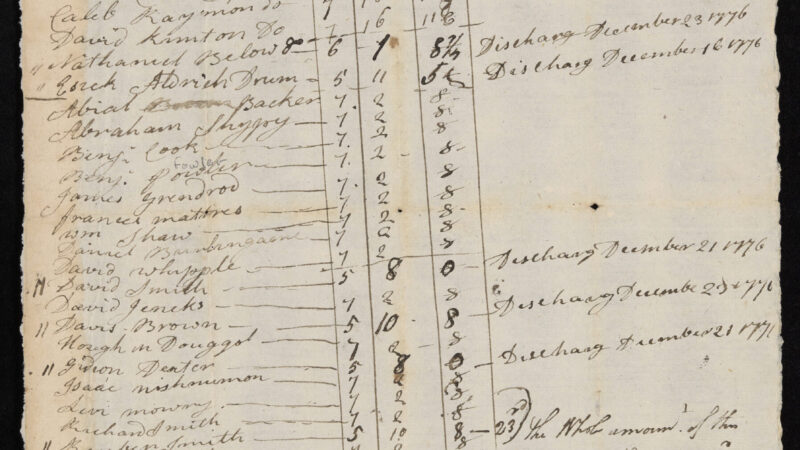 Caleb Raymond Do 7
David Kinton Do 7 16 11 6
Nathaniel Belows 6 1 8 Discharg December 23 1776
" Esek Aldrich Drum 5 11 5 Discharg December 16 1776
Abial Backer 7 2 8
Abraham 7 2 8
Benj. Cook 7. 2 8
Fowler
Benj. 7. 2 8
James Grendrod 7. 2 8
frances mattres 7 2 8
Wm Shaw 7 2 8
Daniel 7 2 8
David Whipple 7 2 8
" David Smith 5 8 0 Discharg December 21 1776
David Jencks 7 2 8
" Davis Brown 5 10 8 Discharg December 1776
Douggol 7 2 8
" Gideon Dexter 5 8 0 Discharg December 21 1776
Isaac 7 2 8
Levi mowry 7 2 8
Richard Smith 7 2 8
" Smith 5 10 8 23rd) the Whole amount. of this